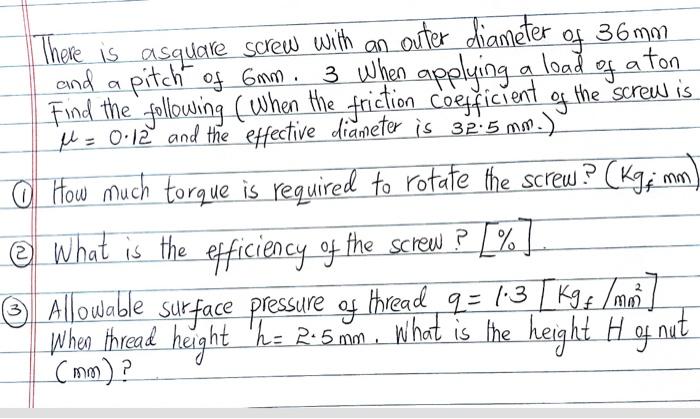 There is asquare screw with an outer diameter of 36mm
and a pitch of 6mm. 3 When applying a load of a ton
Find the following (When the friction coefficient of the screw is
μ = 0.12 and the effective diameter is 32.5 mm.)
① How much torque is required to rotate the screw? (Kgf·mm)
② What is the efficiency of the screw? [%].
③ Allowable surface pressure of thread q = 1.3 [Kgf/mm²]
When thread height h = 2.5mm. What is the height H of nut
(mm)?